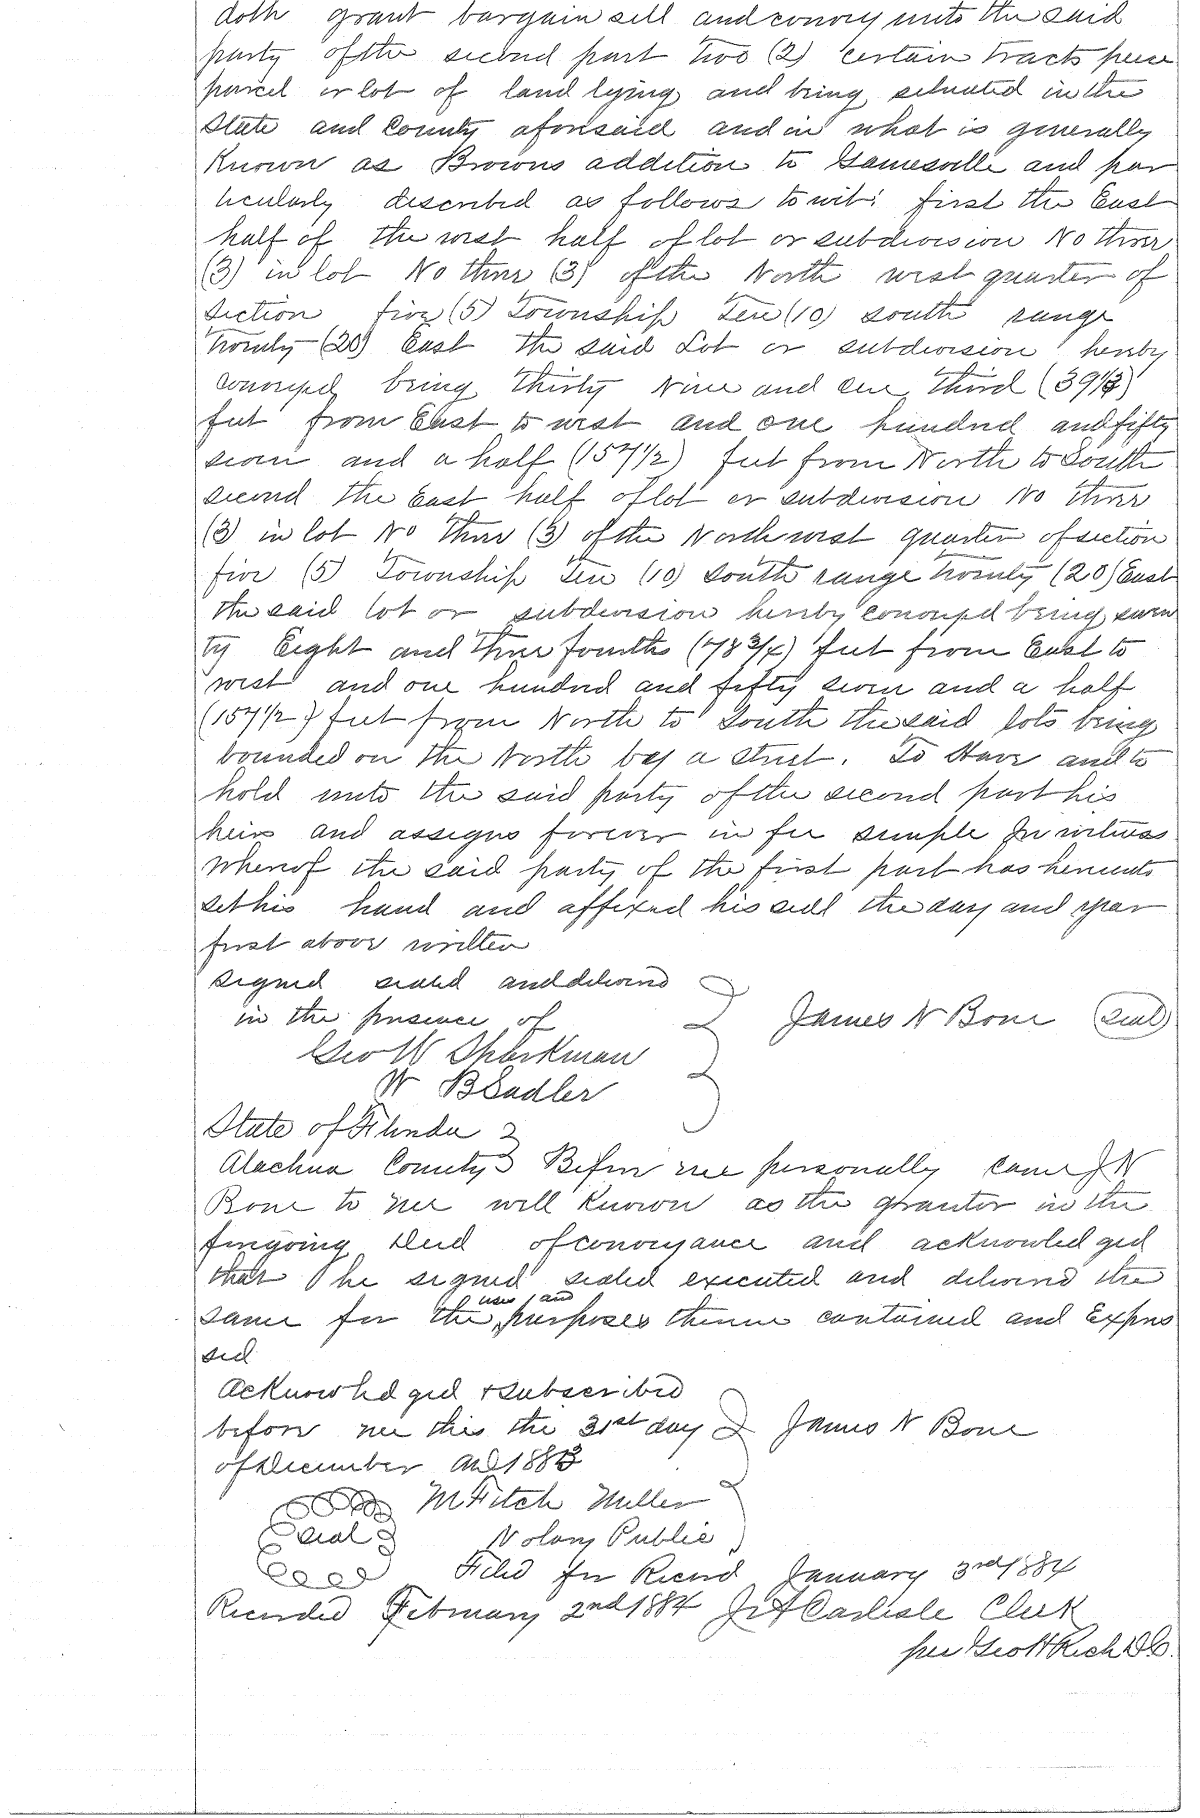 doth grant bargain sell and convey unto the said
party of the second part Two (2) certain tracts peice
parcel or lot of land lying and being situated in the
State and County aforesaid and in what is generally
Known as Browns addition to Gainesville and par
ticularly described as follows to wit: first the East
half of the west half of lot or subdivision No three
(3) in lot No three (3) of the North west quarter of
Section five (5) Township Ten (10) South range
Twenty (20) East the said Lot or subdivision hereby
conveyed being Thirty Nine and one third (39 1/3)
feet from East to west and one hundred and fifty
seven and a half (157 1/2) feet from North to South
second the East half of lot or subdivision No three
(3) in lot No Three (3) of the North west quarter of section
five (5) Township Ten (10) South range Twenty (20) East
the said lot or subdivision hereby conveyed being seven
ty Eight and three fourths (78 3/4) feet from East to
west and one hundred and fifty seven and a half
(157 1/2) feet from North to South the said lots being
bounded on the North by a Street. To Have and to
hold unto the said party of the second part his
heirs and assigns forever in fee simple In witness
Whereof the said party of the first part has hereunto
set his hand and affixed his seal the day and year
first above written
Signed sealed and delivered
in the presence of James N Bone (seal)
Geo W Sparkman
W B Sadler
State of Florida
Alachua County Before me personally came J N
Bone to me well Known as the grantor in the
foregoing Deed of conveyance and acknowledged
that he signed sealed executed and delivered the
same for the uses and purposes therein contained and Expres
sed
Acknowledged & subscribed
before me this the 31st day James N Bone
of December AD 1883
M Fitch Miller
seal Notary Public
Filed for Record January 3rd 1884
Recorded February 2nd 1884 J A Carlisle Clerk
per Geo H Rich D.C.